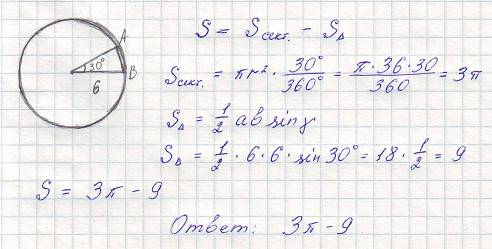 A
30°
B
6
S = S сект. - S△
S сект. = πr² · 30°/360° = π·36·30/360 = 3π
S△ = 1/2 ab sin γ
S△ = 1/2 · 6 · 6 · sin 30° = 18 · 1/2 = 9
S = 3π - 9
Ответ: 3π - 9